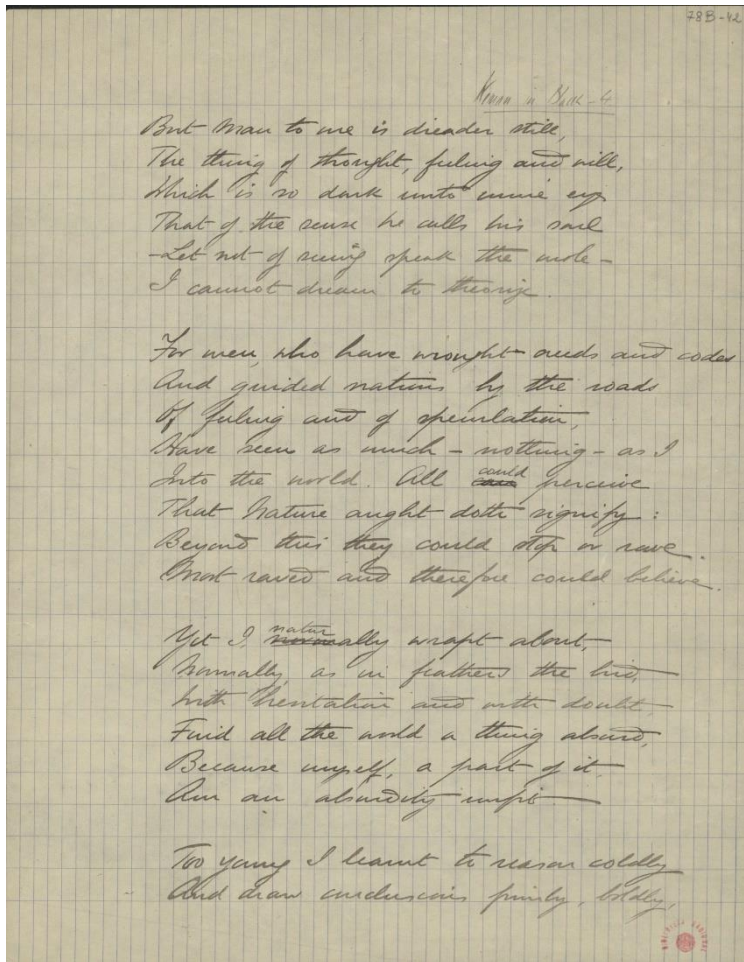 78B-42
Woman in Black - 4
But Man to me is dreader still,
The thing of thought, feeling and will,
Which is so dark unto mine eyes
That of the sense he calls his soul
- Let not of seeing speak the mole -
I cannot dream to theorize.
For men, who have wrought creeds and codes
And guided nations by the roads
Of feeling and of speculation,
Have seen as much - nothing - as I
Into the world. All could perceive
That Nature aught doth signify:
Beyond this they could stop or rave.
Most raved and therefore could believe.
Yet I, naturally wrapt about,
Normally, as in feathers the bird,
With hesitation and with doubt,
Find all the world a thing absurd,
Because myself, a part of it
Am an absurdity unfit.
Too young I learnt to reason coldly
And draw conclusions firmly, boldly,